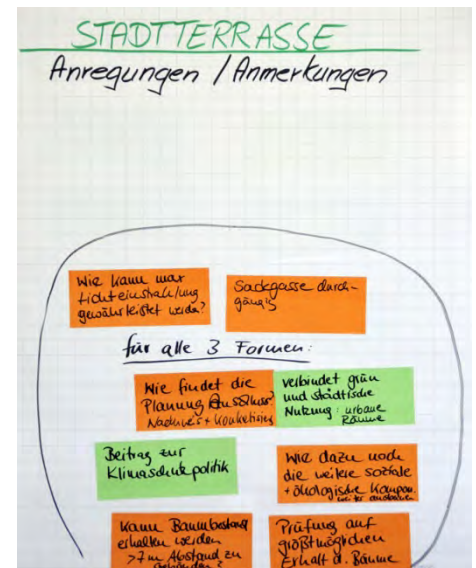 STADTTERRASSE
Anregungen / Anmerkungen
Wie kann max
Lichteinstrahlung
gewährleistet werden?
Sackgasse durch-
gängig
für alle 3 Formen:
Wie findet die
Planung
Nachweis + Konkretisierung
verbindet grün
und städtische
Nutzung: urbane
Räume
Beitrag zur
Klimaschutzpolitik
Wie dazu noch
die weitere soziale
+ ökologische Kompon.
weiter
Kann Baumbestand
erhalten werden
>7m Abstand zu
Gebäuden?
Prüfung auf
größtmöglichen
Erhalt d. Bäume